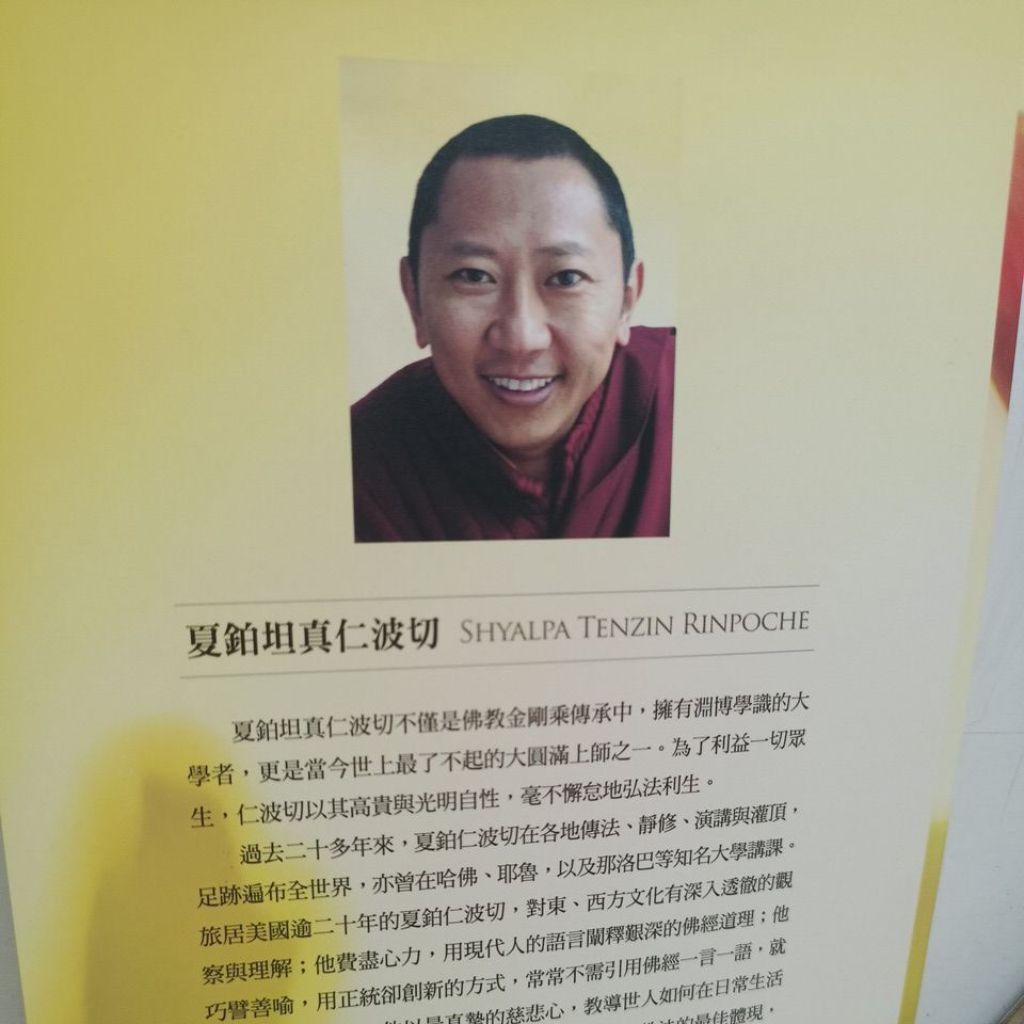 夏鉑坦真仁波切 SHYALPA TENZIN RINPOCHE
夏鉑坦真仁波切不僅是佛教金剛乘傳承中，擁有淵博學識的大
學者，更是當今世上最了不起的大圓滿上師之一。為了利益一切眾
生，仁波切以其高貴與光明自性，毫不懈怠地弘法利生。
過去二十多年來，夏鉑仁波切在各地傳法、靜修、演講與灌頂，
足跡遍布全世界，亦曾在哈佛、耶魯，以及那洛巴等知名大學講課。
旅居美國逾二十年的夏鉑仁波切，對東、西方文化有深入透徹的觀
察與理解；他費盡心力，用現代人的語言闡釋艱深的佛經道理；他
巧譬善喻，用正統卻創新的方式，常常不需引用佛經一言一語，就
以最真摯的慈悲心，教導世人如何在日常生活
的最佳體現，